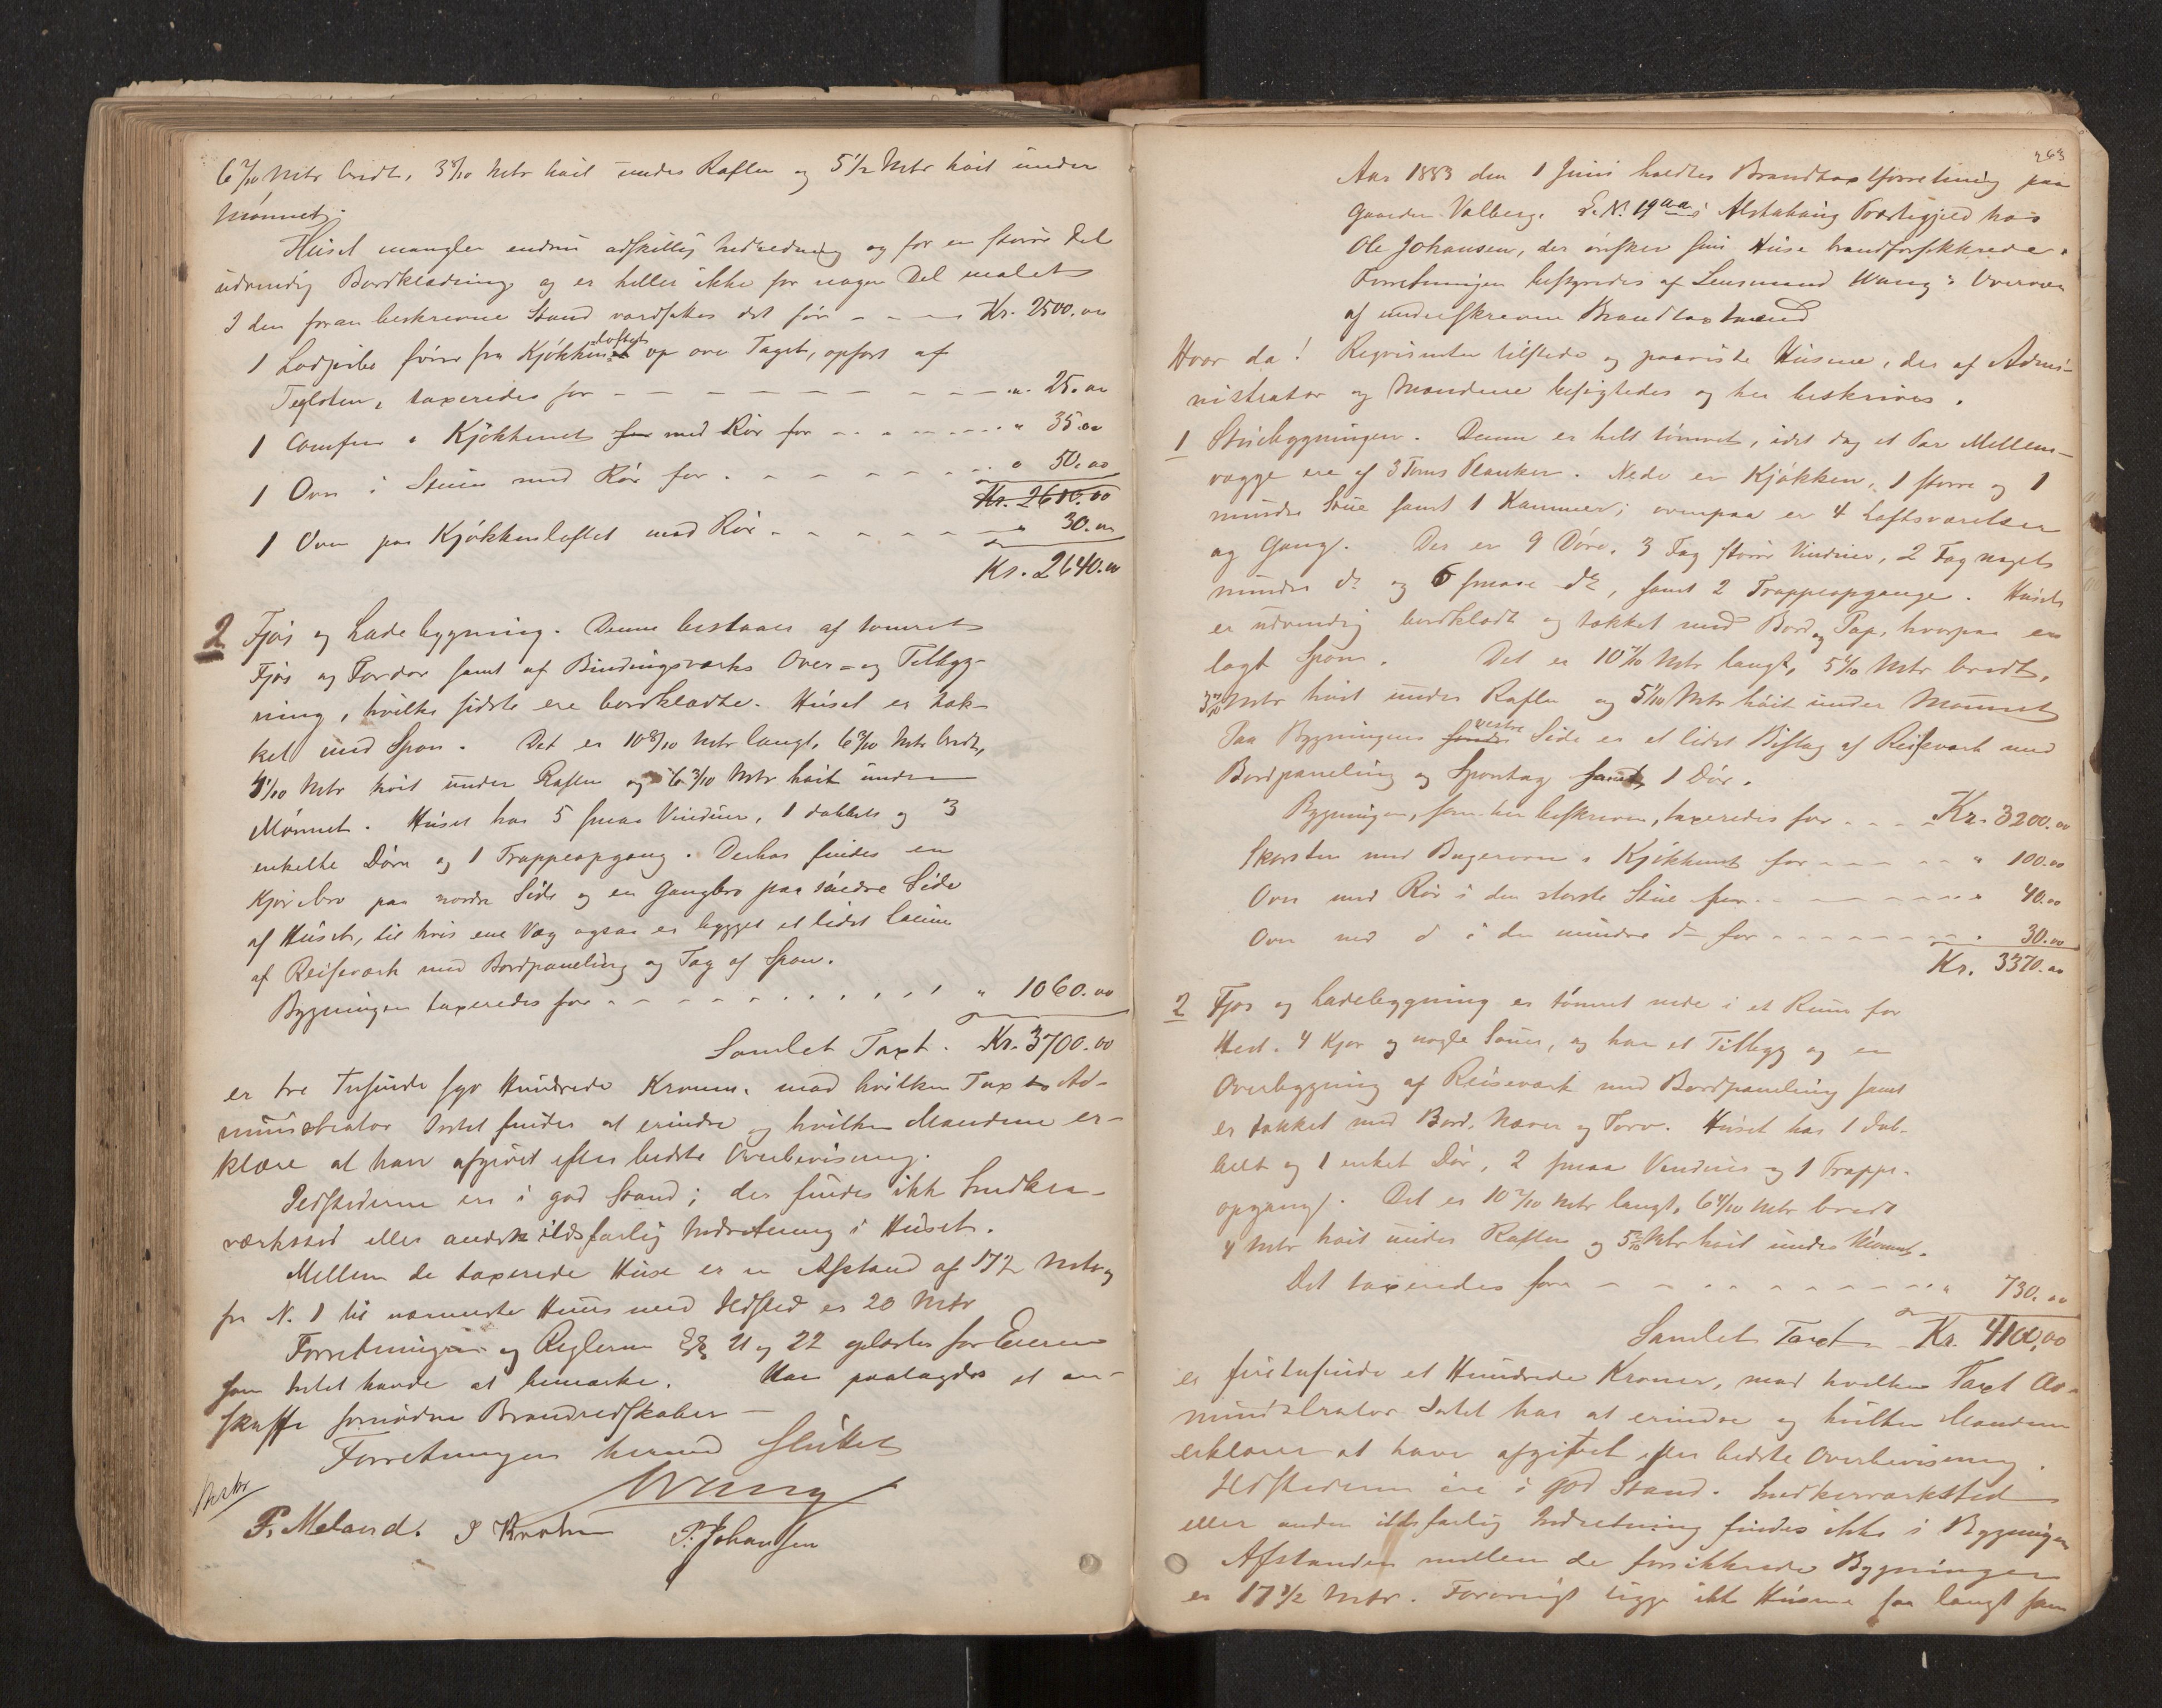 6 7/10 Mtr bredt, 3 8/10 Mtr høit under Raften og 5 1/2 Mtr høit under
Mønnet.
Huset mangler endnu adskillig Indredning og for en større Del
udvendig Bordklædning og er heller ikke for nogen Del malet
I den foran beskrevne Stand værdsattes det for - - - Kr. 2500.00
1 Ladpibe fører fra Kjøkkenloftet op over Taget, opført af
Teglsten, taxeredes for - - - - - - - - - " 25.00
1 Comfur i Kjøkkenet med Rør for - - - - - - " 35.00
1 Ovn i Stuen med Rør for - - - - - - - " 50.00
Kr. 2610.00
1 Ovn paa Kjøkkenloftet med Rør - - - - - - " 30.00
Kr. 2640.00
2 Fjøs og Ladebygning. Denne bestaaer af tømret
Fjøs og Fordør samt af Bindingsværks Over- og Tilbyg-
ning, hvilke sidste ere bordklædte. Huset er tæk-
ket med Spon. Det er 10 8/10 Mtr langt, 6 3/10 Mtr bredt,
4 1/10 Mtr høit under Raften og 6 3/10 Mtr høit under
Mønnet. Huset har 5 smaa Vinduer, 1 dobbelt og 3
enkelte Døre og 1 Trappeopgang. Derhos findes en
Kjørebro paa nordre Side og en Gangbro paa søndre Side
af Huset, til hvis ene Væg ogsaa er bygget et lidet
af Reisværk med Bordpaneling og Tag af Spon.
Bygningen taxeredes for - - - - - - - - - " 1060.00
Samlet Taxt. Kr. 3700.00
er tre Tusinde syv Hundrede Kroner, mod hvilken Taxt Ad-
ministrator Intet findes at erindre og hvilken Mændene er-
klære at have afgivet efter bedste Overbevisning.
Ildstederne ere i god Stand; der findes ikke Snedker-
værksted eller anden ildsfarlig Indretning i Huset.
Mellem de taxerede Huse er en Afstand af 17 1/2 Mtr og
fra N. 1 til nærmeste Huus med Ildsted er 20 Mtr
Forretningen og Reglerne §§ 21 og 22 oplæstes for Eieren
som Intet havde at bemærke. Han paalagdes at an-
skaffe fornødne Brandredskaber -
Forretningen hermed sluttet
Wang
P. Meland. J Krohn P. Johansen
263
Aar 1883 den 1 Juni holdtes Brandtaxtforretning paa
Gaarden Valberg. L.N. 19 aa i Alstahaug Præstegjeld hos
Ole Johansen, der ønsker sine Huse brandforsikkrede.
Forretningen bestyredes af Lensmand Wang i Overvær
af underskrevne Brandtaxtmænd
Hvor da! Reqvirenten tilstede og paaviste Husene, der af Admi-
nistrator og Mændene besigtedes og her beskrives.
1 Stuebygningen. Denne er helt tømret, idet dog et Par Mellem-
vægge ere af 3 Toms Planker. Nede er Kjøkken, 1 større og 1
mindre Stue samt 1 Kammer; ovenpaa er 4 Loftsværelser
og Gang. Der er 9 Døre, 3 Fag større Vinduer, 2 Fag noget
mindre do og 6 smaae do, samt 2 Trappeopgange. Huset
er udvendig bordklædt og tækket med Bord og Pap, hvorpaa er
lagt Spon. Det er 10 7/10 Mtr langt, 5 6/10 Mtr bredt,
3 7/10 Mtr høit under Raften og 5 1/10 Mtr høit under Mønnet
Paa Bygningens vestre Side er et lidet Bislag af Reisværk med
Bordpaneling og Spontag samt 1 Dør.
Bygningen, som her beskreven, taxeredes for - - - Kr. 3200.00
Skorsten med Bagerovn i Kjøkkenet for - - - - - " 100.00
Ovn med Rør i den største Stue for - - - - - - " 40.00
Ovn med do i den mindre do for - - - - - - - " 30.00
Kr. 3370.00
2 Fjøs og Ladebygning er tømret nede i et Rum for
Hest. 4 Kjør og nogle Souer, og har et Tilbyg og en
Overbygning af Reisværk med Bordpaneling samt
er tækket med Bord, Næver og Torv. Huset har 1 dob-
belt og 1 enkelt Dør, 2 smaa Vinduer og 1 Trappe-
opgang. Det er 10 2/10 Mtr langt, 6 4/10 Mtr bredt
4 Mtr høit under Raften og 5 5/10 Mtr høit under Mønnet.
Det taxeredes for - - - - - - - - - " 730.00
Samlet Taxt Kr. 4100,00
er firetusinde et Hundrede Kroner, mod hvilken Taxt Ad-
ministrator Intet har at erindre og hvilken Mændene
erklærer at have afgivet efter bedste Overbevisning.
Ildstederne ere i god Stand. Snedkerværksted
eller anden ildsfarlig Indretning findes ikke i Bygningen
Afstanden mellem de forsikkrede Bygninger
er 17 1/2 Mtr. Forøvrigt ligge ikke Husene saa langt fra